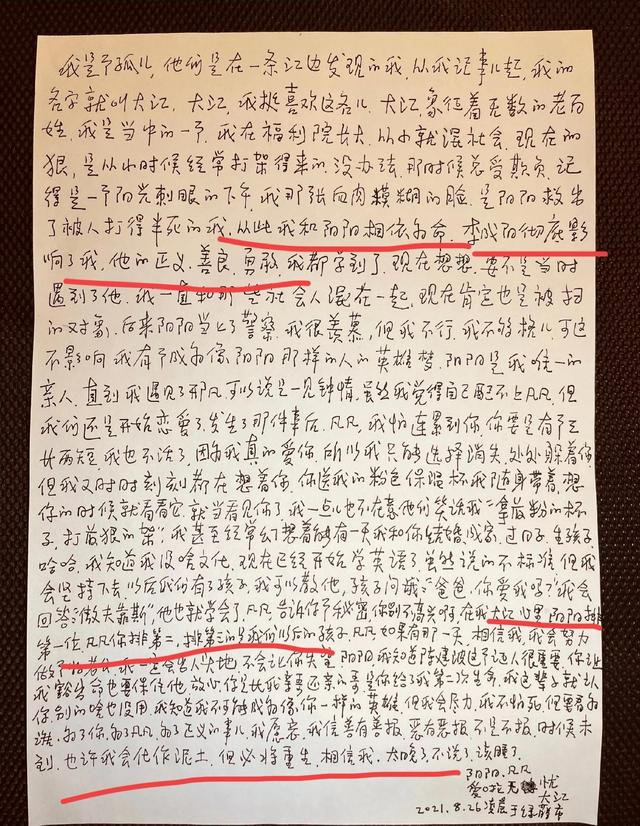 我是个孤儿，他们是在一条江边发现的我，从我记事儿起，我的
名字就叫大江，大江，我挺喜欢这名儿，大江象征着无数的老百
姓，我是当中的一个，我在福利院长大，从小就混社会，现在的
狠，是从小时候经常打架得来的，没办法，那时候总受欺负，记
得是一个阳光刺眼的下午，我那张血肉模糊的脸，是阳阳救出
了被人打得半死的我，从此我和阳阳相依为命，李成阳彻底影
响了我，他的正义、善良、勇敢，我都学到了，现在想想，要不是当时
遇到了他，我一直和那些社会人混在一起，现在肯定也是被扫
的对象，后来阳阳当上了警察，我很羡慕，但我不行，我不够格儿，可这
不影响我有个成为像阳阳那样的人的英雄梦，阳阳是我唯一的
亲人，直到我遇见了那凡，可以说是一见钟情，虽然我觉得自己配不上凡凡，但
我们还是开始恋爱了，发生了那件事后，凡凡，我怕连累到你，你要是有个三
长两短，我也不活了，因为我真的爱你，所以我只能选择消失，处处躲着你，
但我又时时刻刻都在想着你，你送我的粉色保温杯我随身带着，想
你的时候就看看它，就当看见你了，我一点儿也不在意他们笑话我“拿最粉的杯
子，打最狠的架”，我甚至经常幻想着能有一天我和你结婚，成家，过日子，生孩子，
哈哈，我知道我没啥文化，现在已经开始学英语了，虽然说的不标准，但我
会坚持下去，以后我们有了孩子，我可以教他，孩子问我：“爸爸，你爱我吗？”我会
回答：“傲夫靠斯”他也就学会了，凡凡，告诉你个秘密，你别不高兴啊，在我大江心里，阳阳排
第一位，凡凡你排第二，排第三的是我们以后的孩子，凡凡，如果有那一天，相信我，我会努力
做个好老公，我一定会出人头地，不会让你失望，阳阳，我知道陈建波这个证人很重要，你让
我豁出命也要保住他，放心，你是比我亲哥还亲的哥，是你给了我第二次生命，我这辈子就认
你，别的啥也没用，我知道我不可能成为像你一样的英雄，但我会尽力，我不怕死，但要看为
谁，为了你，为了凡凡，为了正义的事儿，我愿意，我信善有善报，恶有恶报，不是不报，时候未
到，也许我会化作泥土，但必将重生，相信我，太晚了，不说了，该睡了，
阳阳，凡凡
爱你无忧
大江
2021.8.26凌晨于绿藤市